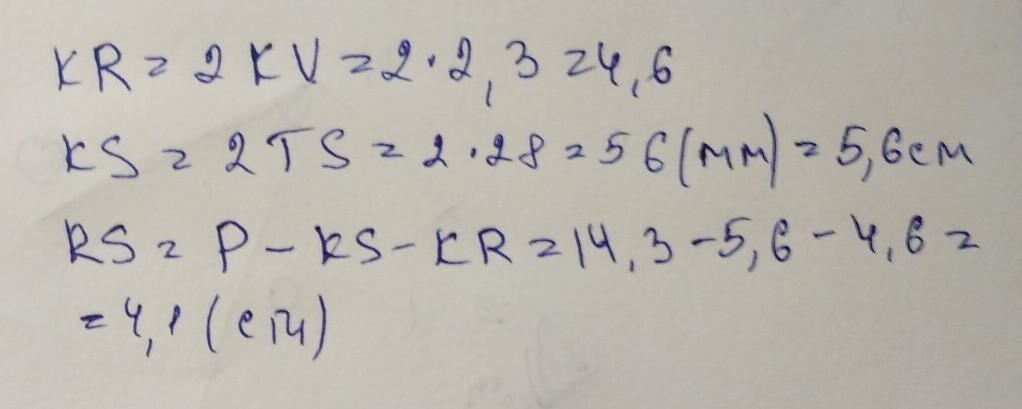 KR = 2 KV = 2·2,3 = 4,6
KS = 2 TS = 2·28 = 56 (мм) = 5,6 см
RS = P - KS - KR = 14,3 - 5,6 - 4,6 =
= 4,1 (см)